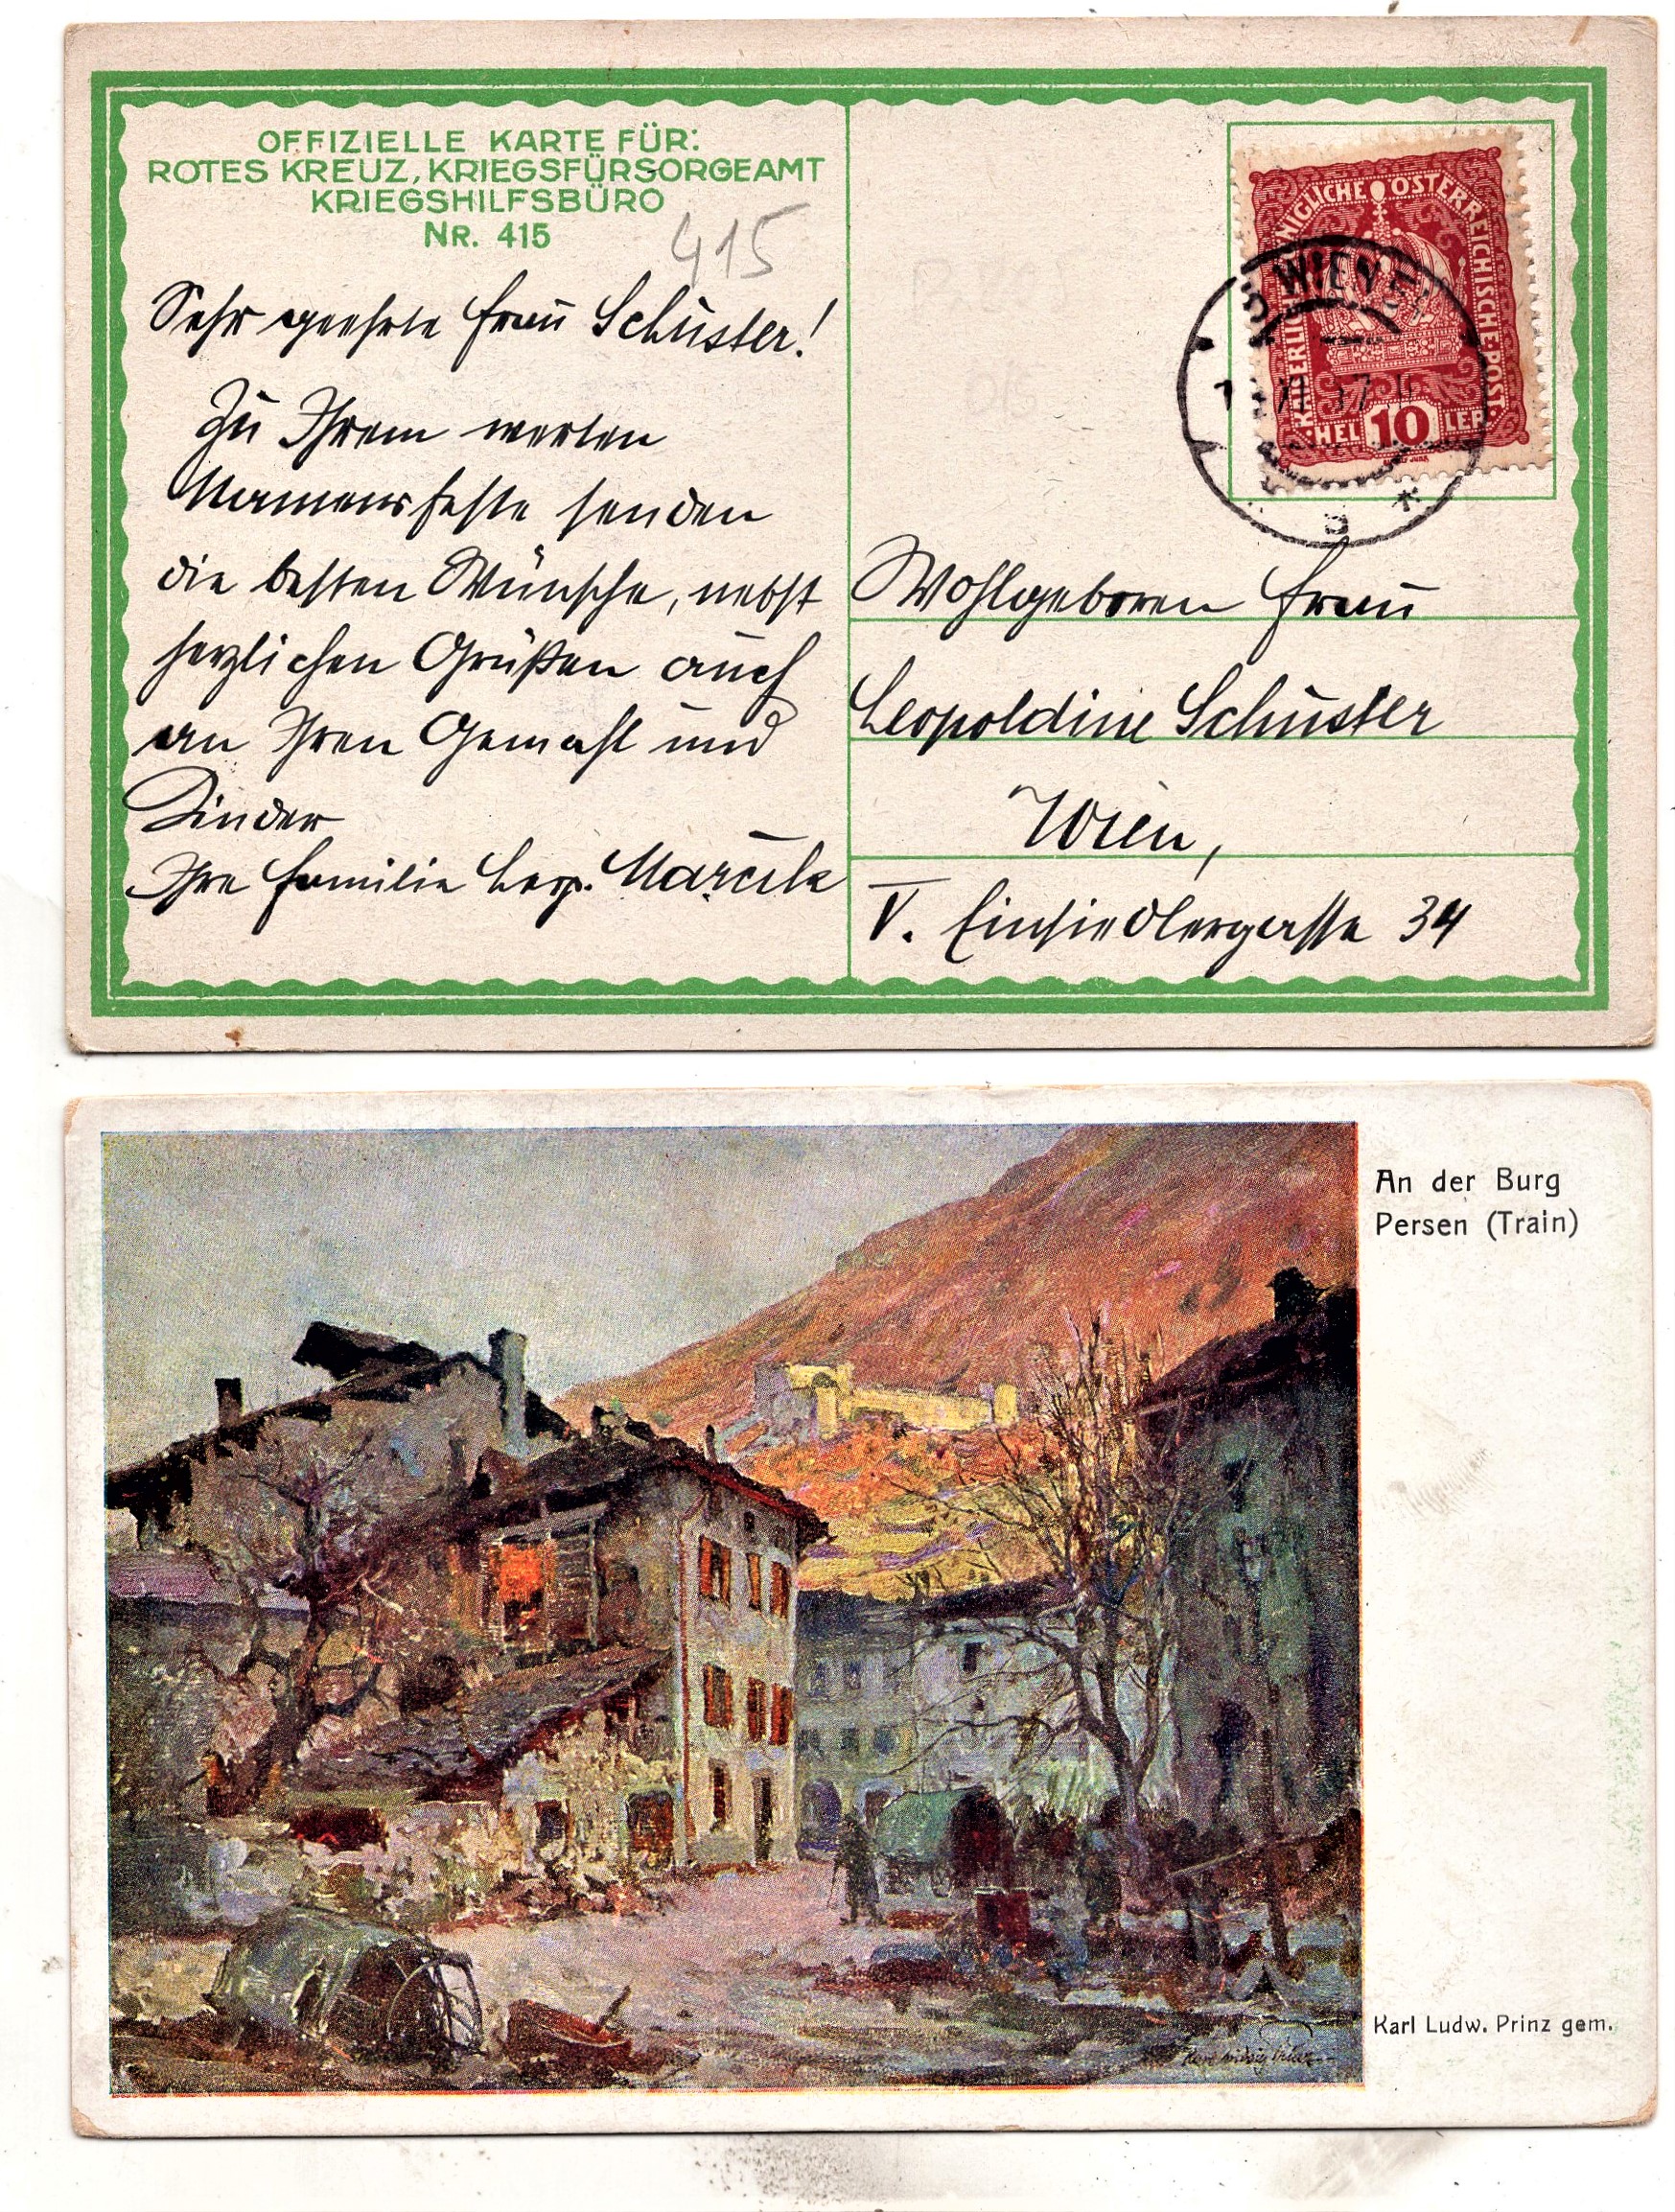 OFFIZIELLE KARTE FÜR:
ROTES KREUZ, KRIEGSFÜRSORGEAMT
KRIEGSHILFSBÜRO
NR. 415
415
Sehr geehrte Frau Schuster!
Zu Ihrem werten
Namensfeste senden
die besten Wünsche, nebst
herzlichen Grüßen auch
an Ihren Gemahl und
Kinder
Ihre Familie Leop.
KAISERLICHE KÖNIGLICHE ÖSTERREICHISCHE POST
HELLER 10
WIEN
Wohlgeboren Frau
Leopoldine Schuster
Wien,
V. Einsiedlergasse 34
An der Burg
Persen (Train)
Karl Ludw. Prinz gem.
Karl Ludwig Prinz